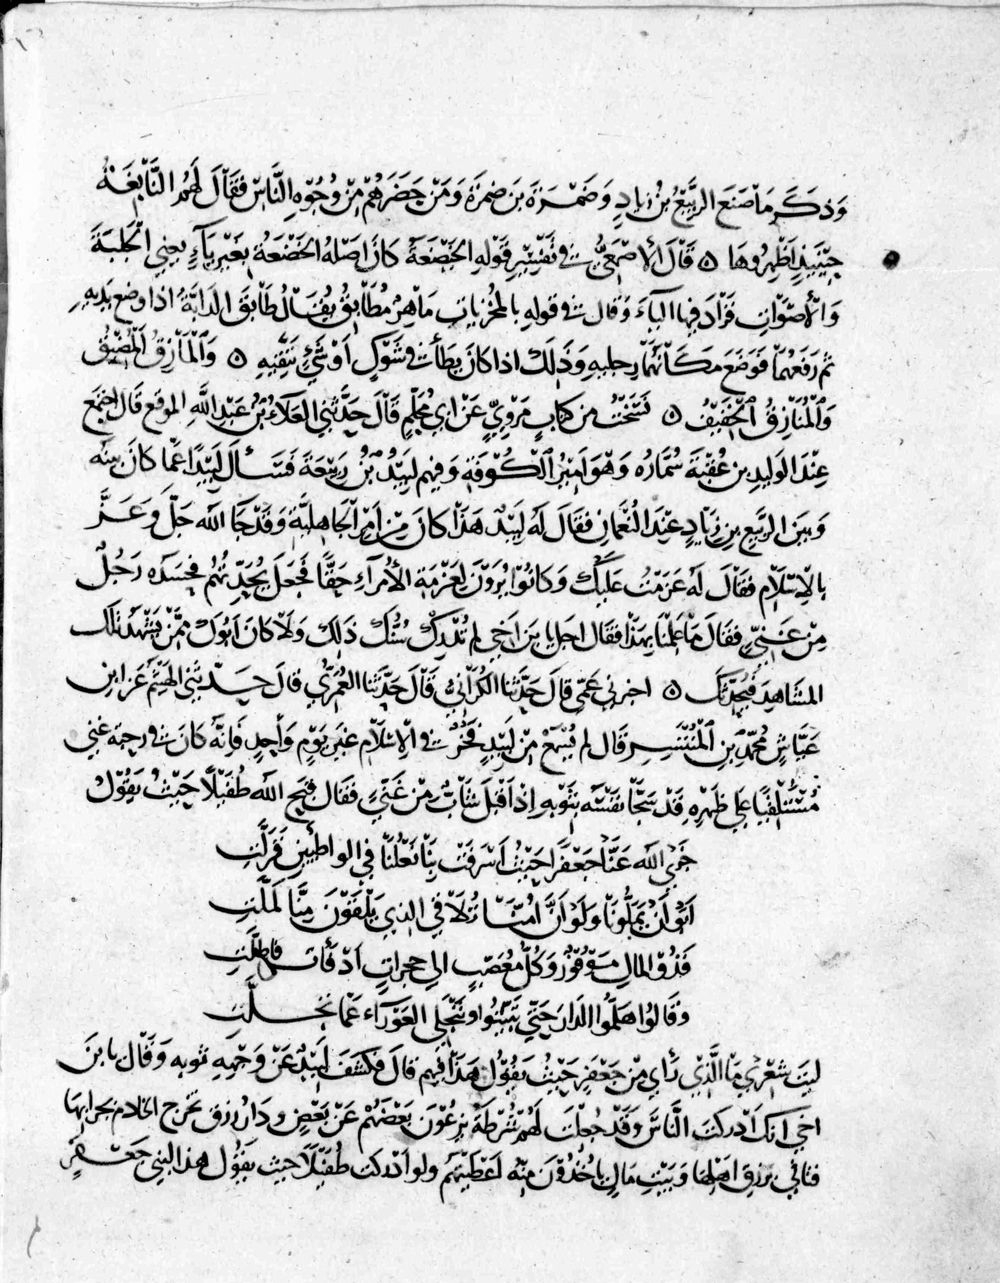 وَذَكَرَ مَا صَنَعَ الرَّبِيْعُ بْنُ زِيَادٍ وَضَمْرَةَ بن ضمرَة وَمَن حَضَرَهُمْ مِنْ وُجُوْهِ النَّاسْ فَقَالَ لَهُمُ النَّابِغَةُ
حِيْنَئِذٍ اَظْهِرُوهَا ۞ قَالَ الأَصْمَعِيُّ فى تَفْسِيْرِ قَوْلِهِ الخَيْضَعَةَ كَانَ اَصْلهُ الخَضَعَةُ بِغَيْرِ يَآءٍ يعنِي الجَلَبَةَ
وَالأَصْوَاتِ فَزَادَ فِيهَا اليَاءَ وَقال فى قولهِ بالمخزيَاتِ مَا هِرٌ مُطَابِقُ يُقَالُ طَابَقَ الدَابَّةُ اذا وضع يديهِ
ثم رَفَعَهُمَا فَوَضَعَ مَكَانَهُمَا رِجليهِ وَذَلِكَ اذا كانَ يَطَأُ فى شَوْكٍ اَوْ شَيْءٍ يَتَّقِيْهِ ۞ وَالْمَأْزِقُ الْمَضِيْقُ
وَالْمُنَازِقُ الخَفِيْفُ ۞ نَسَخْتُ من كِتابٍ مَرْوِيٍّ عَنْ ابي مُحَلِّمٍ قَالَ حَدَّثَنِي العَلآءُ بْنُ عَبْدِ اللَّهِ الموقع قَالَ اجْتَمَعَ
عِنْدَ الوَليدِ بن عُقْبَةَ سُمَّارُه وَهُوَ اَمِيْرُ الْكُوْفَةِ وَفيهم لَبِيْدُ بْنُ رَبِيْعَةَ فَسَأَلَ لَبِيْدًا عَمَّا كانَ بينَهُ
وَبينَ الربيعِ بنِ زِيَادٍ عِنْدَ النُّعْمَانِ فَقَالَ لَهُ لَبِيْدٌ هَذَا كَانَ مِنْ اَمْرِ الجَاهِليَّةِ وَقَدْ جَآءَ اللَّه جَلَّ وَعَزَّ
بالإِسْلَامِ فقَالَ لَهُ عَزَمْتُ عَلَيْكَ وَكَانُوْا يُرَوْنَ لِعَزْمَةِ الأُمَرآءِ حَقًّا فَجَعَلَ يُحَدِّثُهُمْ فحَسَدَه رَجُلٌ
مِنْ غَنِيٍّ فقَالَ مَا عَلِمْنَا بِهَذا فقَالَ اجَلْ يا بنَ اَخِي لم يُدْرِكْ سِنُّكَ ذَلِكَ وَلَا كَانَ اَبُوْكَ مِمَّنْ يَشْهَدُ تِلْكَ
المشَاهِدَ فَيُحَدِّثَكَ ۞ اخبرنِي عَمِّي قَالَ حَدَّثَنَا الكُرَانِيُّ قَالَ حَدَّثَنَا العُمَرِيُّ قَالَ حَدَّثَنِي الهَيْثَمُ عَن ابْنِ
عَيَّاشٍ مُحَمَّدِ بْنِ الْمُنْتَشِرِ قَال لم يُسْمَعْ مِنْ لَبِيْدٍ فَخْرٌ فى الإِسْلَامِ غَيْرَ يَوْمٍ وَاحِدٍ فَإنَّهُ كانَ فى رحبَةِ غنِي
مُسْتَلْقِيًا عَلى ظَهْرِهِ قَدْ سَجَّا نَفْسَهُ بِثَوْبِهِ اِذْ اَقْبَلَ شَابٌّ مِنْ غَنِيٍّ فَقَالَ قَبَّحَ اللَّه طُفَيْلًا حَيْثُ يَقُوْلُ
جَزَى اللَّه عَنَّا جَعْفَرًا حَيْثُ اَشْرَفَتْ بِنَا نَعْلُنَا فى الواطِئِينَ فَزَلَّتِ
اَبَوْا اَن يَمَلُّونَا وَلَوْ اَنَّ اُمَّنَا تُلاَقِي الذِي يَلْقَوْنَ مِنَّا لَمَلَّتِ
فَذُو المَالِ مَوْفُوْرٌ وَكُلُّ مُعَصَّبٍ الى حجرَاتٍ اَدْفَأَتْ واظلَّتِ
وَقَالُوا هَلُمُّوا الدَارَ حَتَّى تَبَيَّنُوا وَتَنْجَلِي العَوْرَاء عَمَّا تَجلَّتِ
ليتَ شعْري مَا الَّذِي رَأى مِنْ جَعْفَرٍ حَيْثُ يَقُوْلُ هَذَا فيهم قالَ فكَشَفَ لَبِيْدٌ عَنْ وَجْهِهِ ثوبه وَقَالَ يا بنَ
اخي انك اَدْرَكتَ النَّاسَ وَقَدْ جُعِلَتْ لَهُمْ شُرْطَةٌ يزعُوْنَ بَعْضَهُمْ عَنْ بَعْضٍ ودَارُ رزقٍ تخرج الخادِم بجرابِهَا
فتاتي برزقِ اهلِهَا وَبَيْتِ مَالٍ ياخُذُوْنَ مِنْهُ اَعْطِيَتَهُمْ ولو اَدْرَكتَ طُفَيْلًا حيث يقُوْل هذا لبَنِي جَعْفَرٍ